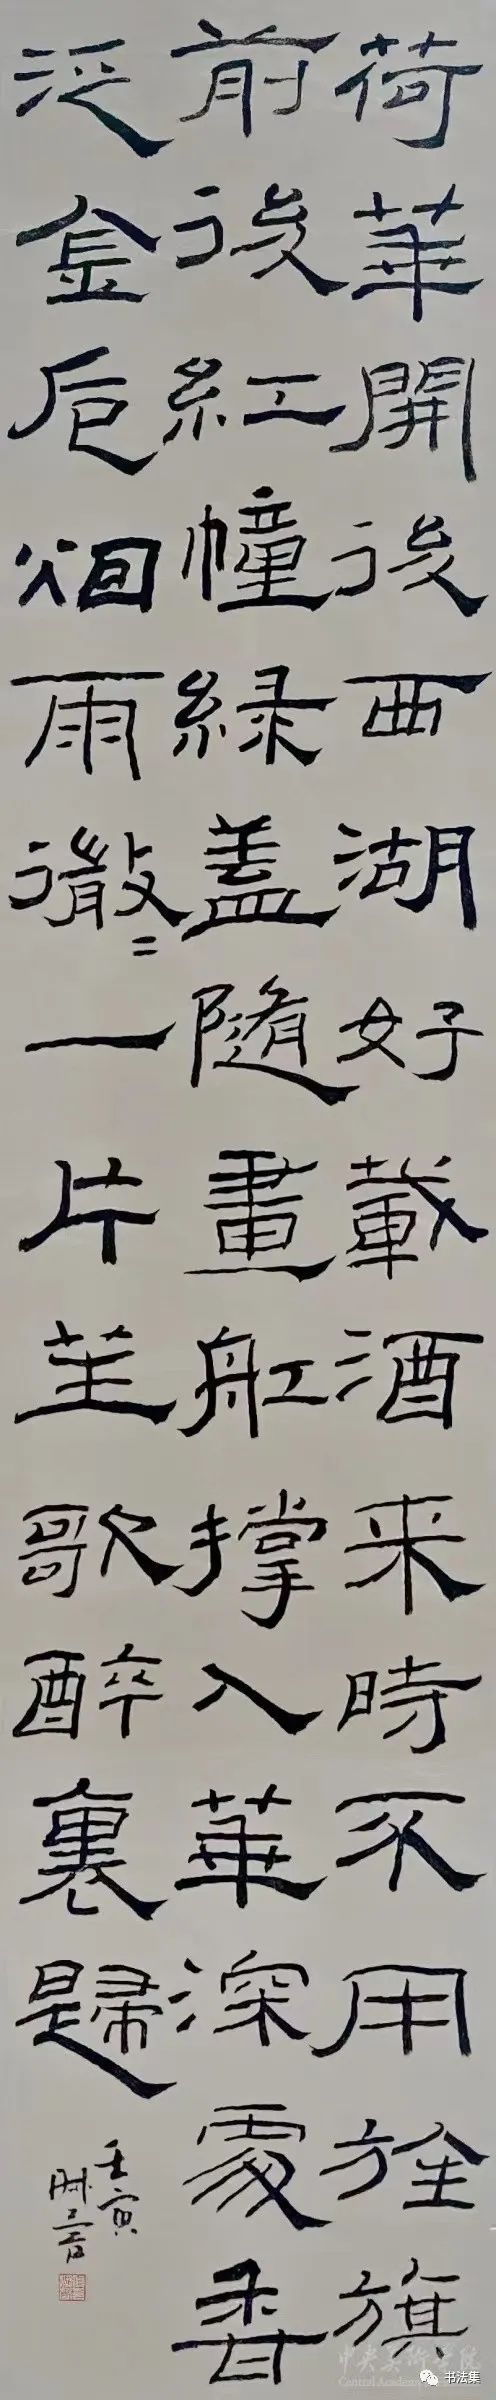 荷華開後西湖好載酒来時不用旌旗
前後紅幢緑蓋隨畫舡撑入華深處香
泛金卮烟雨微〻一片笙歌醉裏歸
壬寅
中央美術學院
Central Academy
书法集